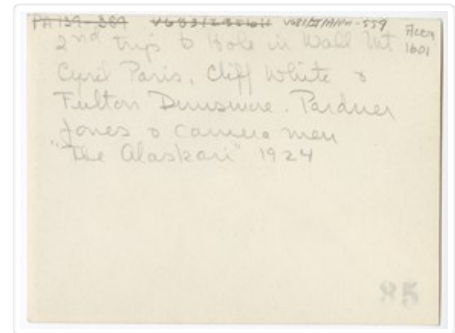 PA 139-389 V683/
V681/ -559
Accn
1601
2nd trip to Hole in Wall Mt
Cyril Paris, Cliff White &
Fulton Dunsmore. Pardner
Jones & camera men
"The Alaskan" 1924
85